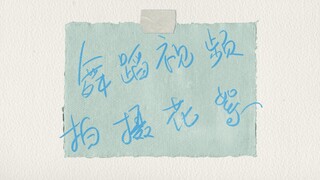 舞蹈视频
拍摄花絮